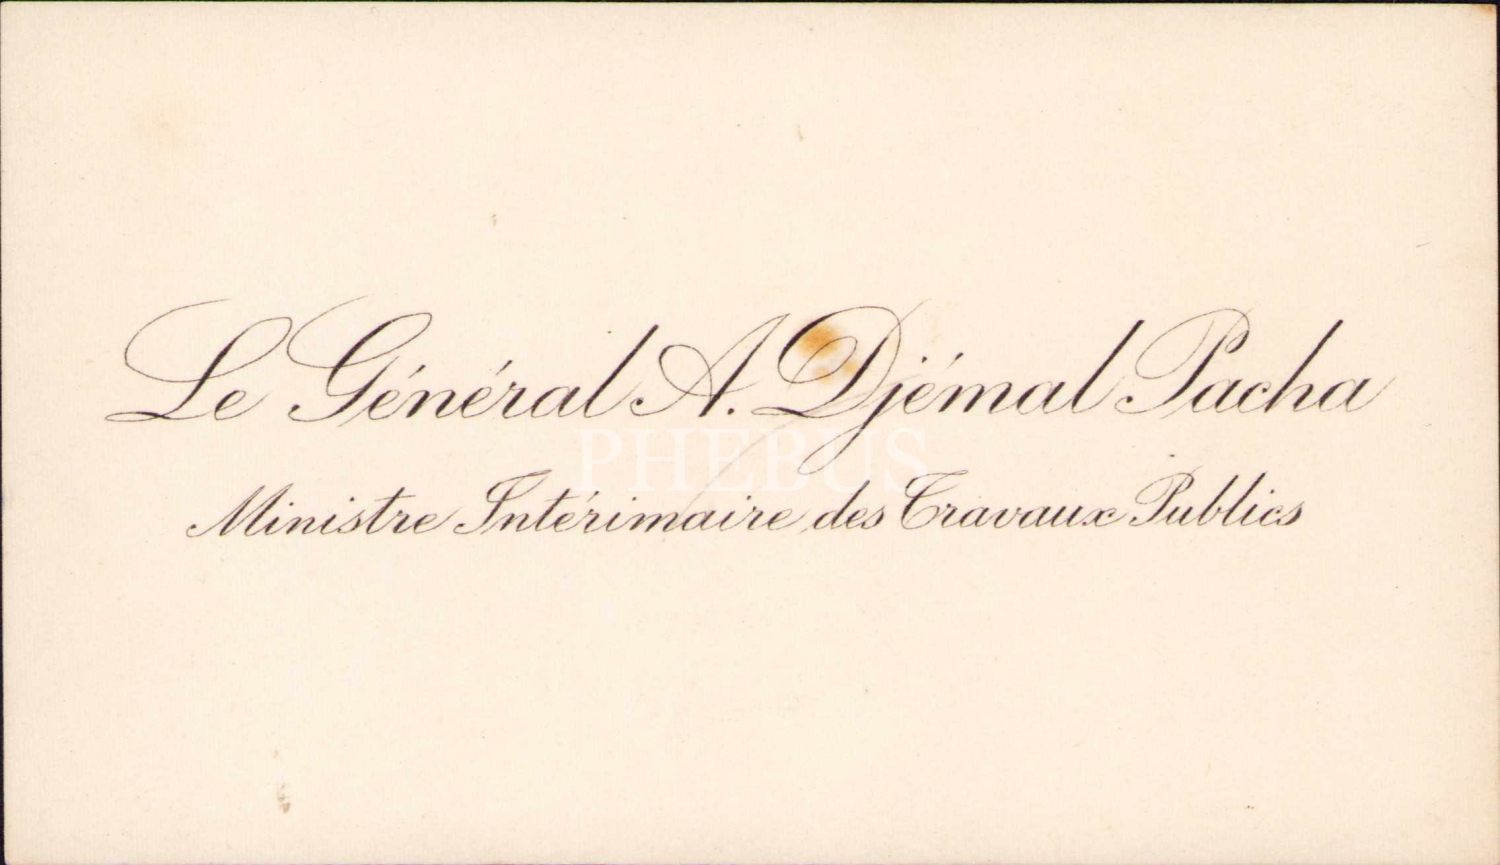 Le Général A. Djémal Pacha
PHEBUS
Ministre Intérimaire des Travaux Publics